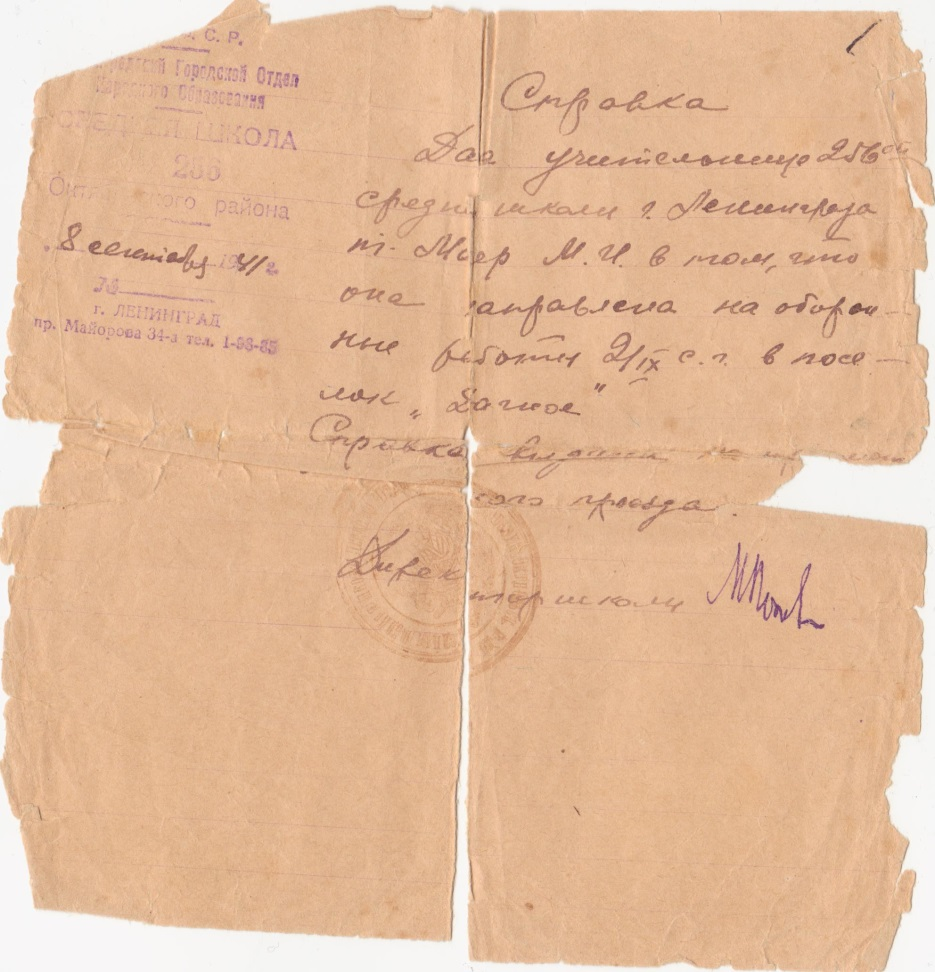 С. Р.
Городской Отдел
Народного Образования
СРЕДНЯЯ ШКОЛА
256
Окт ого района
8 сентября 1941 г.
№
г. ЛЕНИНГРАД
пр. Майорова 34-а тел. 1-98-85
Справка
Дана учительнице 256ой
средн школы г. Ленинграда
т. Меер М. И. в том, что
она направлена на оборон-
ные работы 2/IX с. г. в посе-
лок „Дачное"
Справка выдана на
ого проезда.
Дирек
тор школы